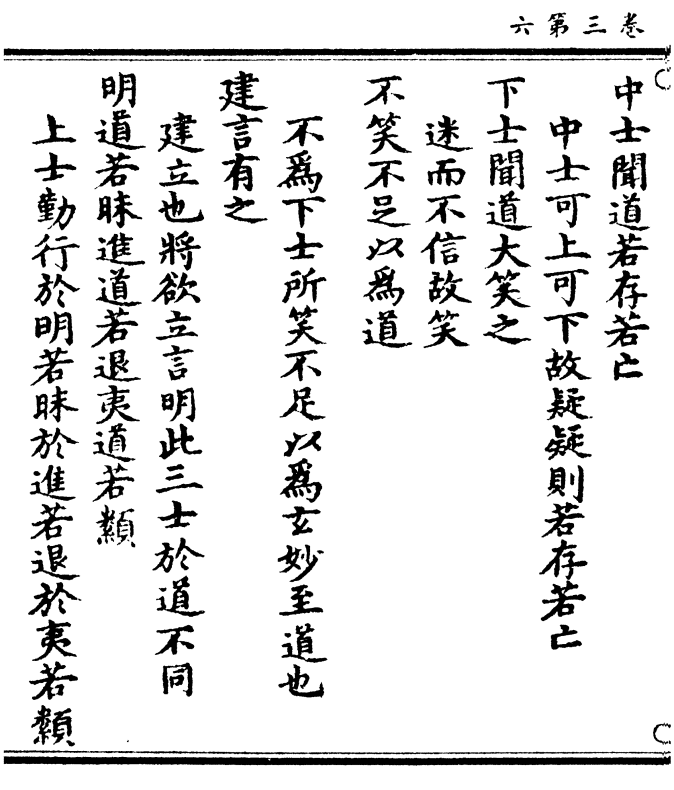 卷三第六
中士聞道若存若亡
中士可上可下故疑疑則若存若亡
下士聞道大笑之
迷而不信故笑
不笑不足以爲道
不爲下士所笑不足以爲玄妙至道也
建言有之
建立也將欲立言明此三士於道不同
明道若昧進道若退夷道若纇
上士勤行於明若昧於進若退於夷若纇